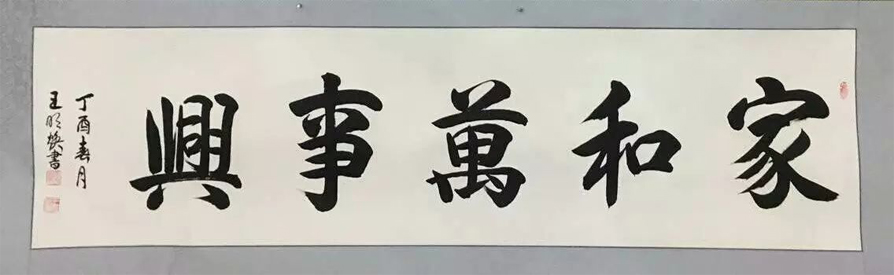 家和萬事興
丁酉春月
王明焕書